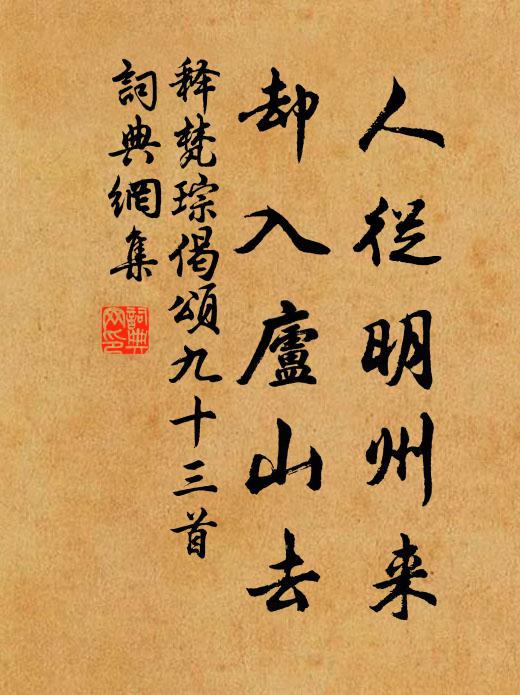 人從明州来
却入廬山去
释梵琮偈頌九十三首
詞典網集
詞典网印